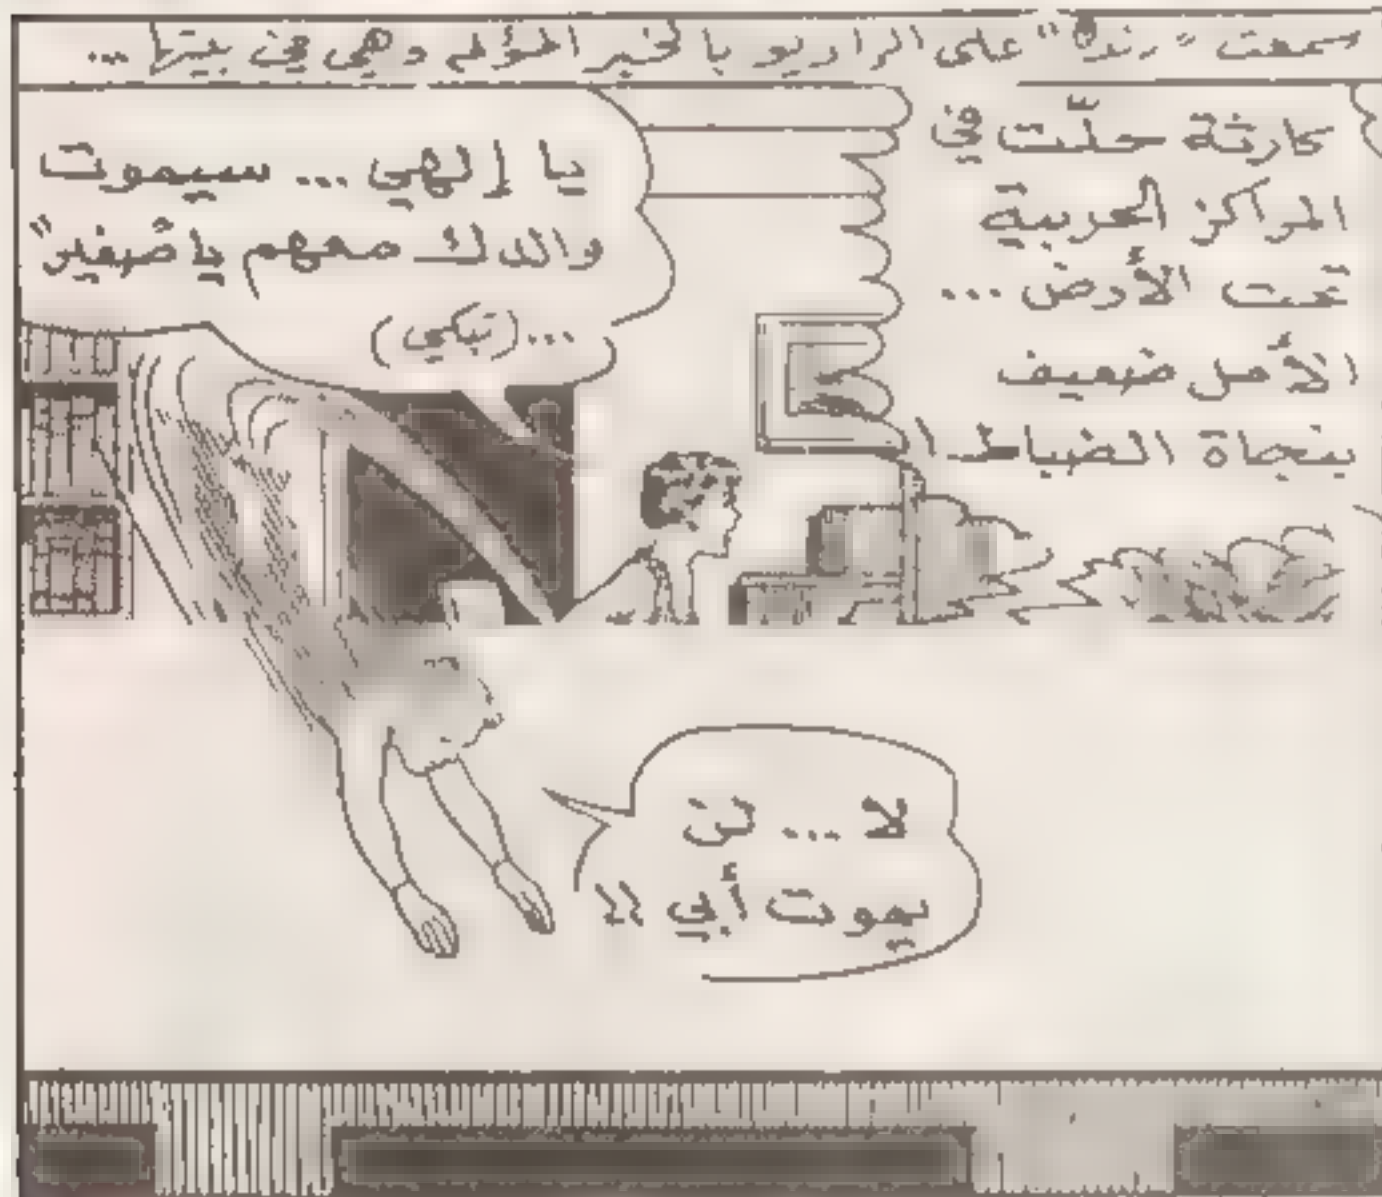 سمعت "رندة" على الراديو بالخبر المؤلم وهي في بيتها ...
كارثة حلّت في
المراكز الحربية
تحت الأرض ...
الأمل ضعيف
بنجاة الضباط!
يا إلهي ... سيموت
والدك معهم يا "صغير"
... (تبكي)
لا ... لن
يموت أبي !!